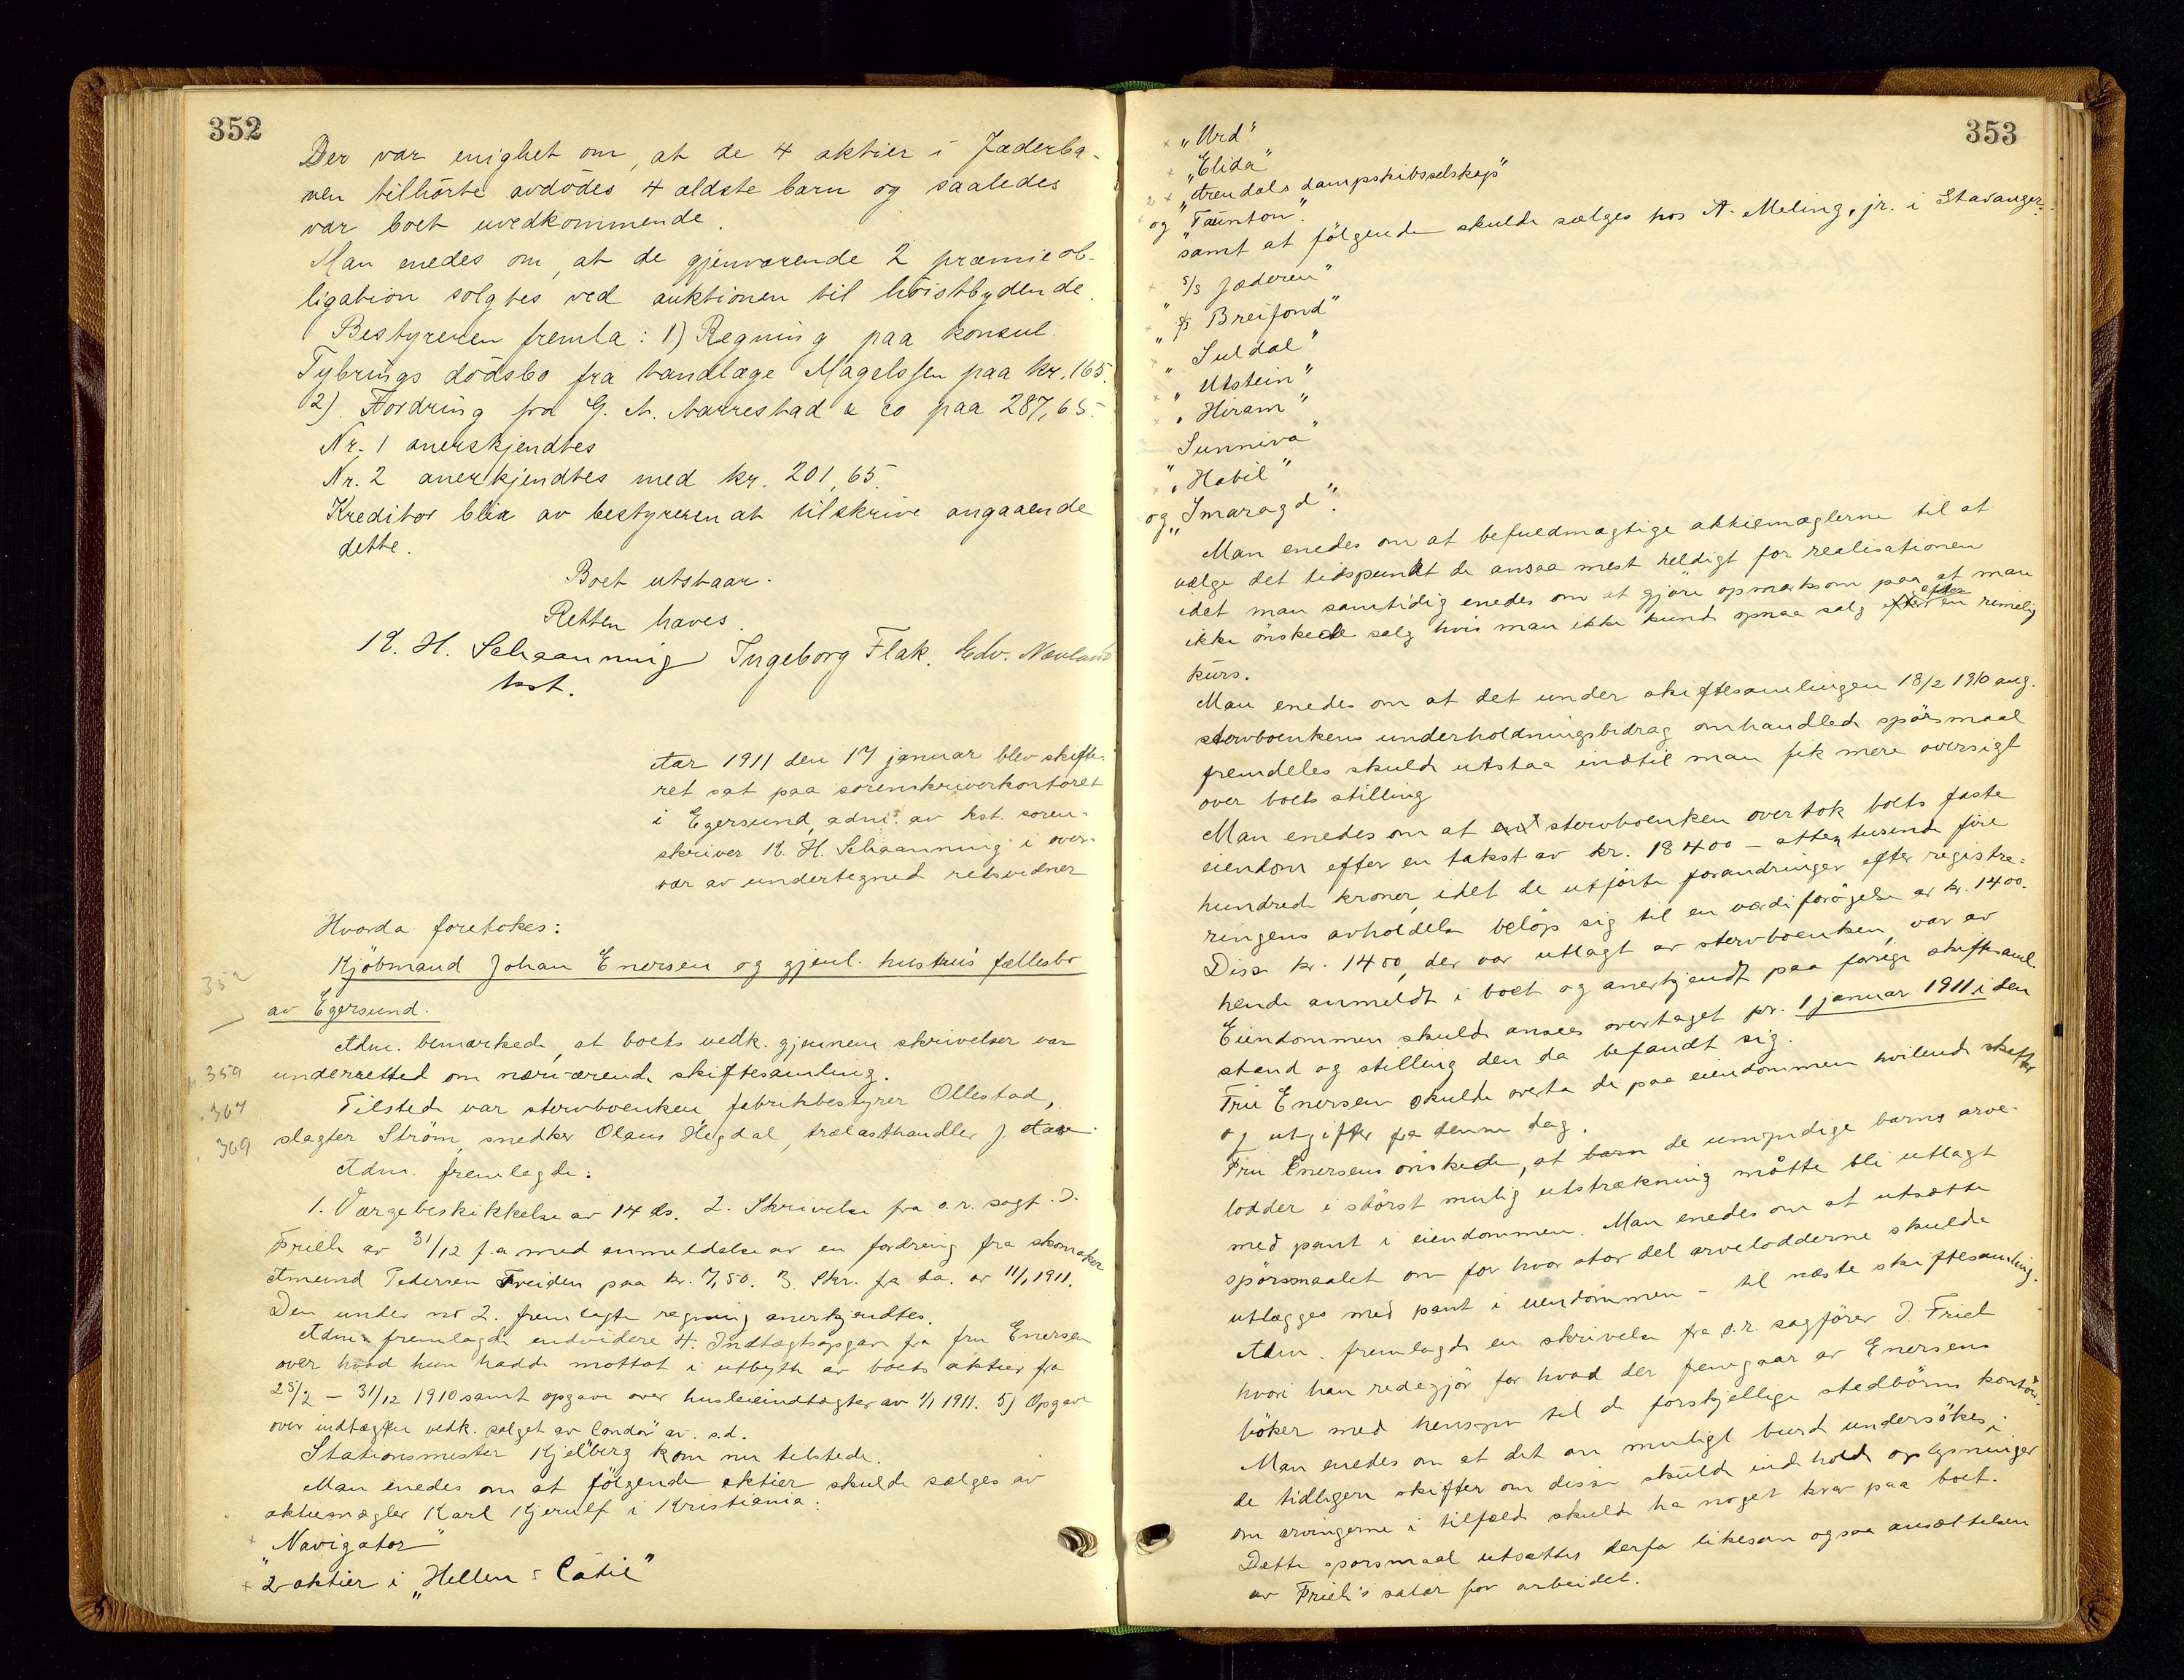 352
Der var enighet om, at de 4 aktier i Jæderba-
nen tilhörte avdödes 4 ældste barn og saaledes
var boet uvedkommende.
Man enedes om, at de gjenværende 2 præmieob-
ligation solgtes ved auktionen til höistbydende.
Bestyreren fremla: 1) Regning paa konsul
Tybrings dödsbo fra tandlæge Magelssen paa kr. 165.
2). Fordring fra G. M. Narrestad & co paa 287,65.
Nr. 1 anerskjendtes
Nr. 2 anerkjendtes med kr. 201,65.
Kreditor blir av bestyreren at tilskrive angaaende
dette.
Boet utstaar.
Retten hæves.
K. H. Schaanning Ingeborg Flak. Edv. Nævland
kst.
Aar 1911 den 17 januar blev skifte-
ret sat paa sorenskriverkontoret
i Egersund, adm. av kst. soren-
skriver K. H. Schaanning i over-
vær av undertegned retsvidner
Hvorda foretokes:
Kjöbmand Johan Enersen og gjenl. hustrus fællesbo
av Egersund.
352
Adm. bemærkede, at boets vedk. gjennem skrivelser var
underretted om nærværende skiftesamling.
359
Tilstede var stervboenken, fabrikbestyrer Ollestad,
364
slagter Ström, snedker Olaus Hegdal, trælasthandler J. Aase
369
Adm. fremlagde:
1. Værgebeskikkelse av 14 ds. 2. Skrivelse fra o.r. sagf. D.
Frich av 31/12 f.a med anmeldelse av en fordring fra skomaker
Amund Pedersen Treiden paa kr. 7,50. 3. Skr. fra da. av 11/1 1911.
Den under no 2. fremlagte regning anerkjendtes.
Adm. fremlagde endvidere 4. Indtægtsopgave fra fru Enersen
over hvad hun hadde mottat i utbytte av boets aktier fra
25/2 – 31/12 1910 samt opgave over husleieindtægter av 1/1 1911. 5) Opgave
over indtægten vedk. salget av "Condor" av s.d.
Stationsmester Kjelberg kom nu tilstede.
Man enedes om at følgende aktier skulde sælges av
aktiemægler Karl Kjerulf i Kristiania:
+ "Navigator"
+ 2 aktier i "Hellen & Catie"
353
+ "Urd"
+ "Elida"
2 + "Arendals dampskibsselskap"
og "Taunton".
samt at fölgende skulde sælges hos A. Meling, jr. i Stavanger:
+ "s/s Jæderen"
+ "s/s Breifond"
+ "Suldal"
+ "Utstein"
+ "Hiram"
"Sunniva"
+ "Habil"
og "Smaragd".
Man enedes om at befuldmægtige aktiemæglerne til at
vælge det tidspunkt de ansaa mest heldigt for realisationen
idet man samtidig enedes om at gjöre opmerksom paa at man
ikke önskede salg hvis man ikke kunde opnaa salg efter en rimelig
kurs.
Man enedes om at det under skiftesamlingen 18/2 1910 ang.
stervboenkens underholdningsbidrag omhandlede spörsmaal
fremdeles skulde utstaa indtil man fik mere oversigt
over boets stilling
Man enedes om at stervboenken overtok boets faste
eiendom efter en takst av kr. 18400 – atten tusende fire
hundrede kroner, idet de utförte forandringer efter registre-
ringens avholdelse belöp sig til en værdiforögelse av kr. 1400.
Disse kr. 1400, der var utlagt av stervboenken, var av
hende anmeldt i boet og anerkjendt paa forrige skiftesaml.
Eiendommen skulde ansees overtaget pr. 1 januar 1911 i den
stand og stilling den da befandt sig.
Fru Enersen skulde overta de paa eiendommen hvilende skatter
og utgifter fra denne dag.
Fru Enersens önskede, at barn de umyndige barns arve-
lodder i störst mulig utstrækning måtte bli utlagt
med pant i eiendommen. Man enedes om at utsætte
spörsmaalet om for hvor stor del arvelodderne skulde
utlægges med pant i eiendommen – til næste skiftesamling.
Adm. fremlagde en skrivelse fra o.r. sagförer D. Frich
hvori han redegjör for hvad der fremgaar av Enersens
böker med hensyn til de forskjellige stedbörns konto.
Man enedes om at det om muligt burde undersökes i
de tidligere skifter om disse skulde indholde oplysninger
om arvingerne i tilfælde skulde ha noget krav paa boet.
Dette spörsmaal utsættes derfor likesom ogsaa ansættelsen
av Frich's salær for arbeidet.